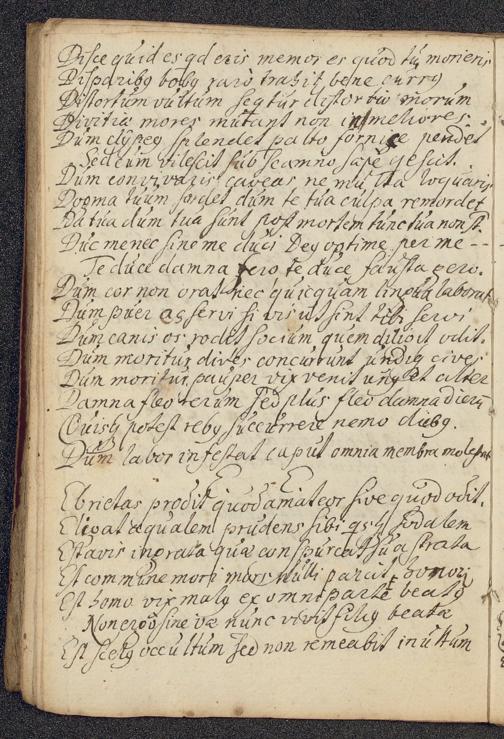 Disce quid es qd eris memor es quod tu morieris
Disparibg bobg raro trahit bene currg
Distortum vultum seqtur distortio morum
Divitiæ mores mutant non in meliores.
Dum clypeg splendet palto fornice pendet
Sed cum vilescit sub scamno sæpe qescit.
Dum conviváris caveas ne multa loquaris
Dogma tuum sordet dum te tua culpa remordet
Da tua dum tua sunt post mortem tunc tua non st.
Duc me nec sine me duci Deg optime per me --
Te duce damna fero te duce fausta gero.
Dum cor non orat nec quicquam lingua laborat
Dum puer as servi si vis ut sint tibi servi
Dum canis os rodit socium quem diligit odit.
Dum moritur dives concurrunt undiq cives
Dum moritur pauper vix venit ung et alter
Damna fleo rerum sed plus fleo damna dierū
Quisq potest rebg succurrere nemo diebg.
Dum labor infestat caput omnia membra molestat
Ebrietas prodit quod amat cor sive quod odit.
Eligat æqualem prudens sibi qsq sodalem
Est avis ingrata quæ conspurcat sua strata
Est commune mori mors nulli parcit honori
Est homo vix malg ex omni parte beatg
Non ergo sine væ nunc vivit filig beatæ
Est scelg occultum sed non remeabit inultum